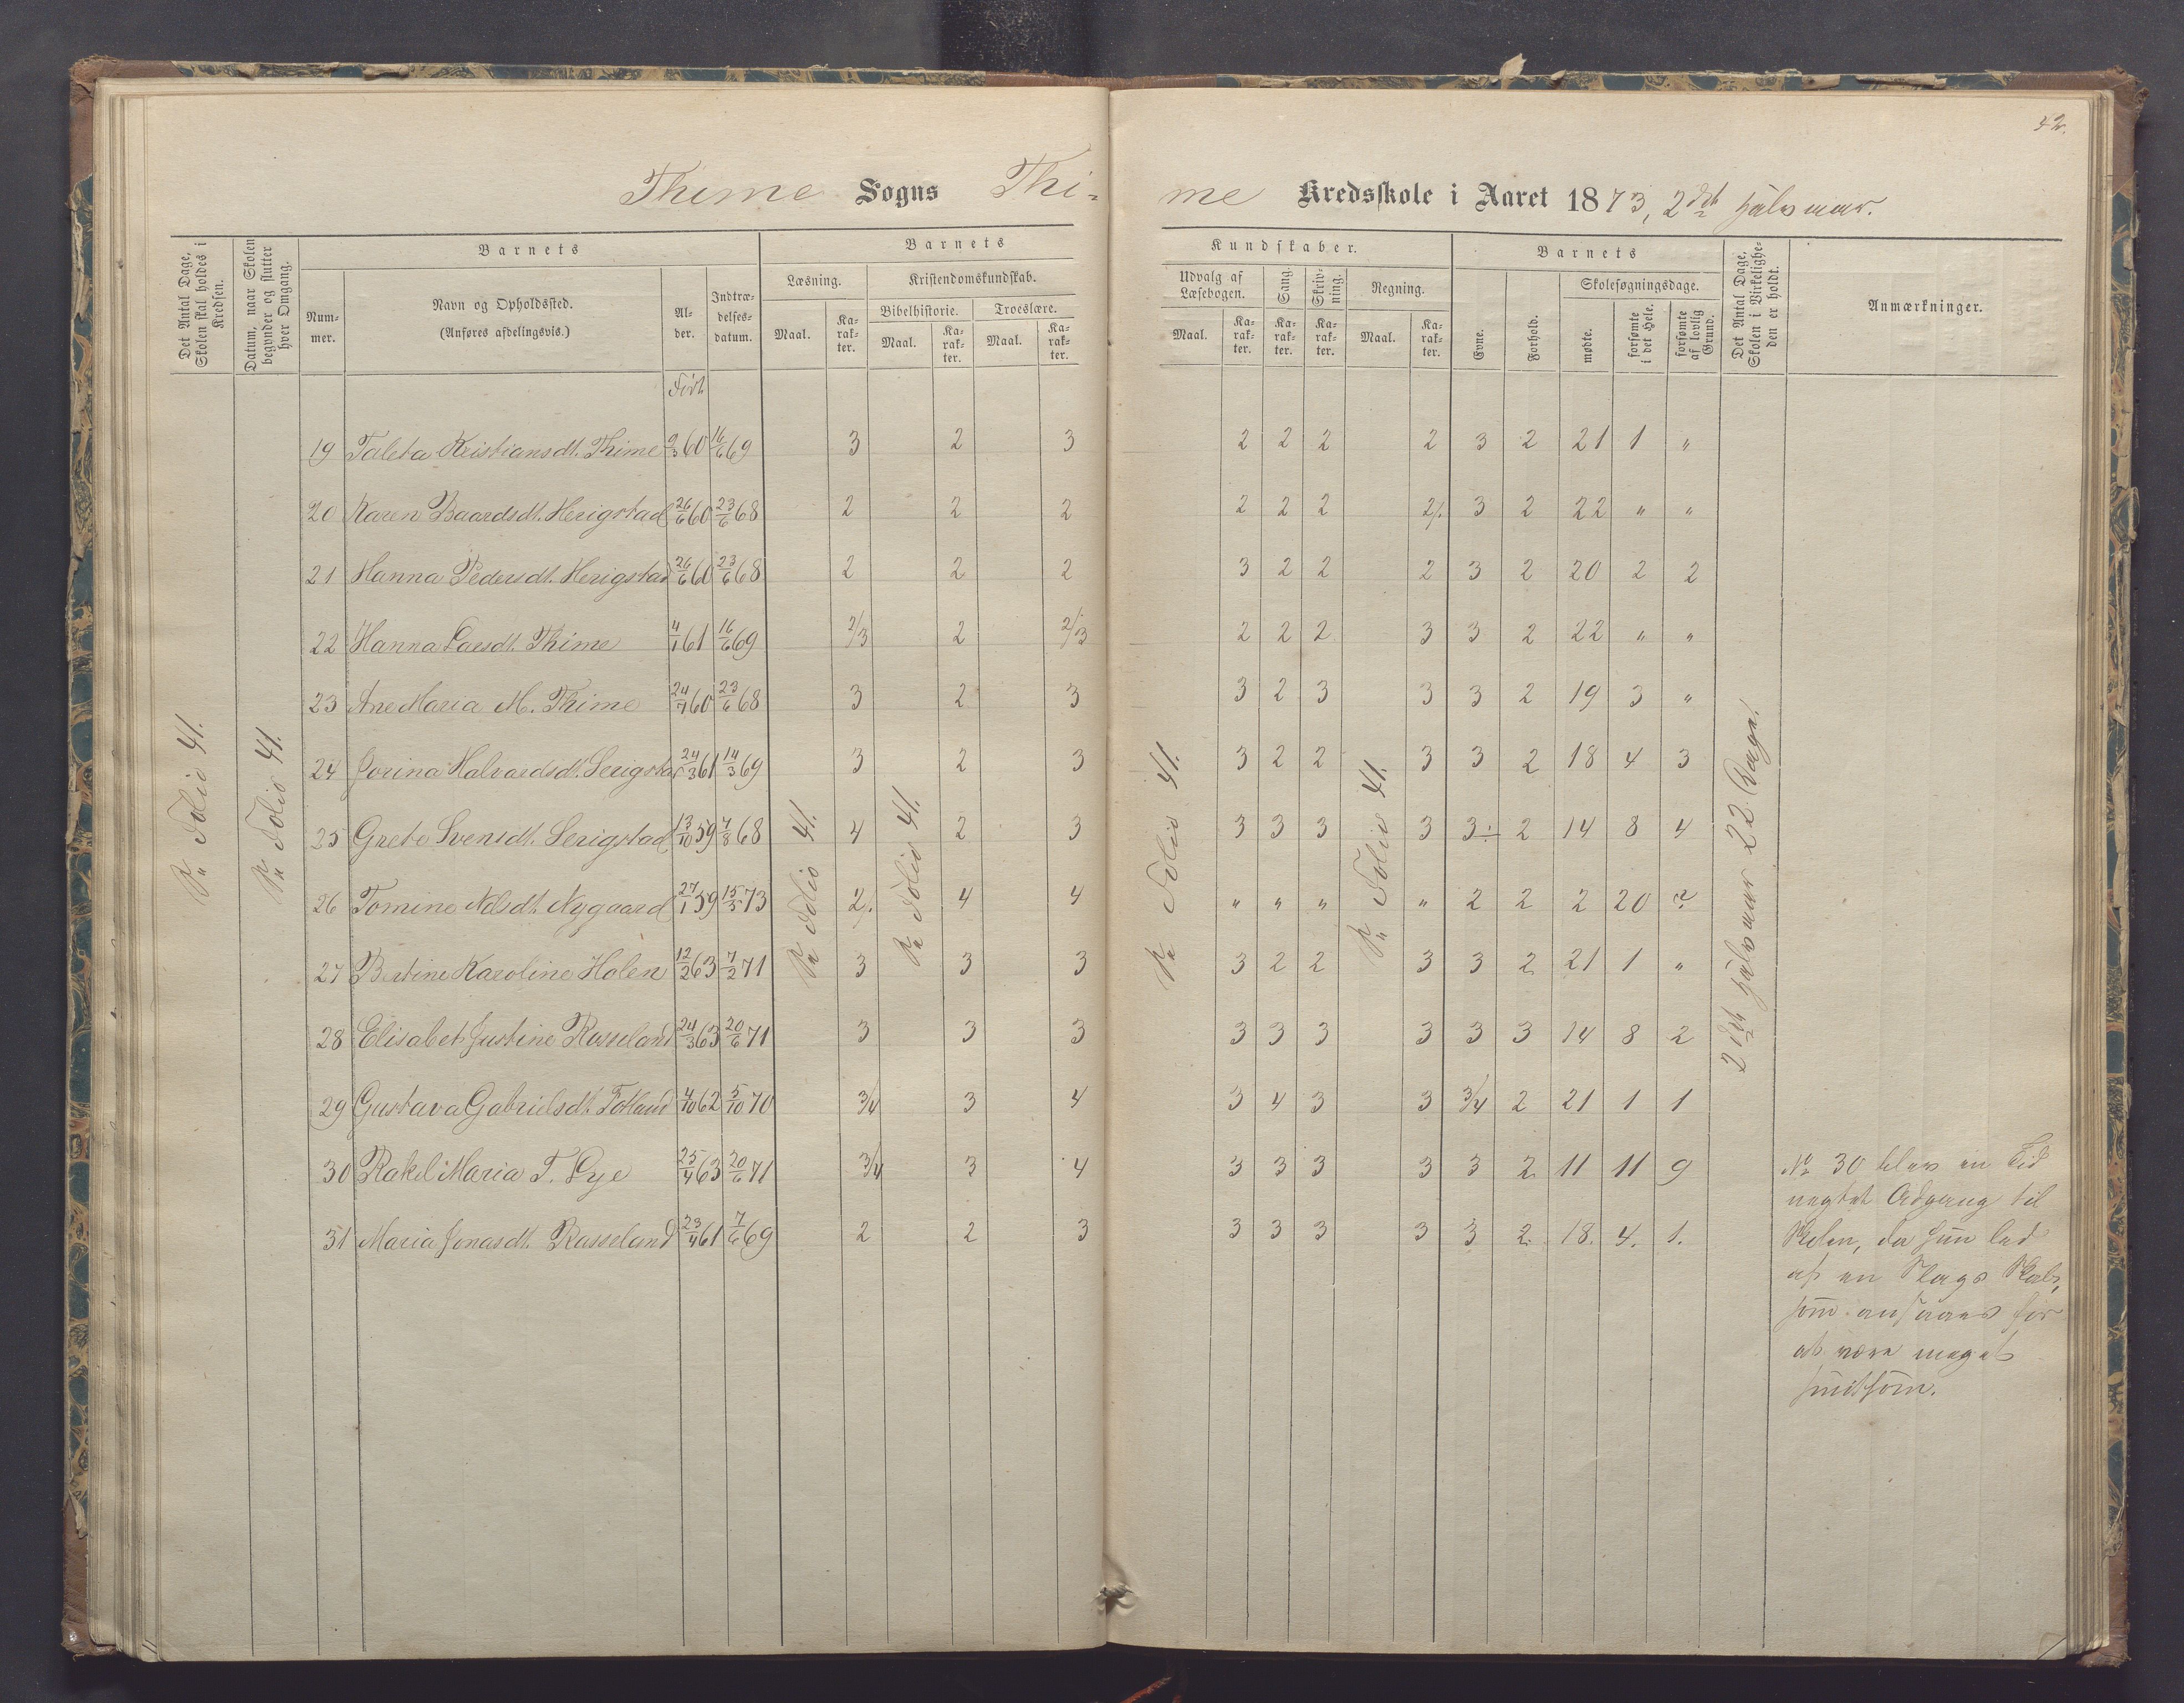 42.
Thime Sogns Thi-
me Kredsskole i Aaret 1873, 2det Halvaar.
Det Antal Dage, Skolen skal holdes i Kredsen.
Datum, naar Skolen begynder og slutter hver Omgang.
Barnets
Num-mer.
Navn og Opholdssted.
(Anføres afdelingsvis.)
Al-der.
Indtræ-delses-datum.
Barnets
Læsning.
Kristendomskundskab.
Bibelhistorie.
Troeslære.
Maal. Ka-rak-ter. Maal. Ka-rak-ter. Maal. Ka-rak-ter.
Kundskaber.
Udvalg af Læsebogen.
Sang.
Skriv-ning.
Regning.
Maal. Ka-rak-ter. Ka-rak-ter. Ka-rak-ter. Maal. Ka-rak-ter.
Barnets
Evne.
Forhold.
Skolesøgningsdage.
mødte.
forsømte i det Hele.
forsømte af lovlig Grund.
Det Antal Dage, Skolen i Virkelighe-den er holdt.
Anmærkninger.
Født
19 Taleta Kristiansdt. Thime 9/3 60 16/6 69 3 2 3 2 2 2 2 3 2 21 1 "
20 Karen Baardsdt. Herigstad 26/6 60 23/6 68 2 2 2 2 2 2 2/. 3 2 22 " "
21 Hanna Pedersdt. Herigstad 26/6 60 23/6 68 2 2 2 3 2 2 2 3 2 20 2 2
22 Hanna Larsdt. Thime 4/1 61 16/6 69 2/3 2 2/3 2 2 2 3 3 2 22 " "
23 Ane Maria M. Thime 24/7 60 23/6 68 3 2 3 3 2 3 3 3 2 19 3 "
24 Jorina Halvardsdt. Serigstad 24/3 61 14/3 69 3 2 3 3 2 2 3 3 2 18 4 3
25 Grete Svensdt. Serigstad 13/10 59 7/8 68 4 2 3 3 3 3 3 3÷ 2 14 8 4
26 Tomine Nilsdt. Nygaard 27/1 59 15/5 73 2/. 4 4 " " " " 2 2 2 20 ?
27 Bertine Karoline Holen 12/2 63 7/2 71 3 3 3 3 2 2 3 3 2 21 1 "
28 Elisabet Justine Rosseland 24/3 63 20/6 71 3 3 3 3 3 3 3 3 3 14 8 2
29 Gustava Gabrielsdt. Fotland 4/10 62 5/10 70 3/4 3 4 3 4 3 3 3/4 2 21 1 1
30 Rakel Maria T. Lye 25/4 63 20/6 71 3/4 3 4 3 3 3 3 3 2 11 11 9
31 Maria Jonasdt. Rosseland 23/4 61 7/6 69 2 2 3 3 3 3 3 3 2. 18. 4. 1.
Se Folio 41.
Se Folio 41.
Se Folio 41.
Se Folio 41.
Se Folio 41.
Se Folio 41.
2det Halvaar 22 Dage.
No 30 blev en Tid
negtet Adgang til
Skolen, da hun led
af en Slags Skab,
som ansaaes for
at være meget
smitsom.